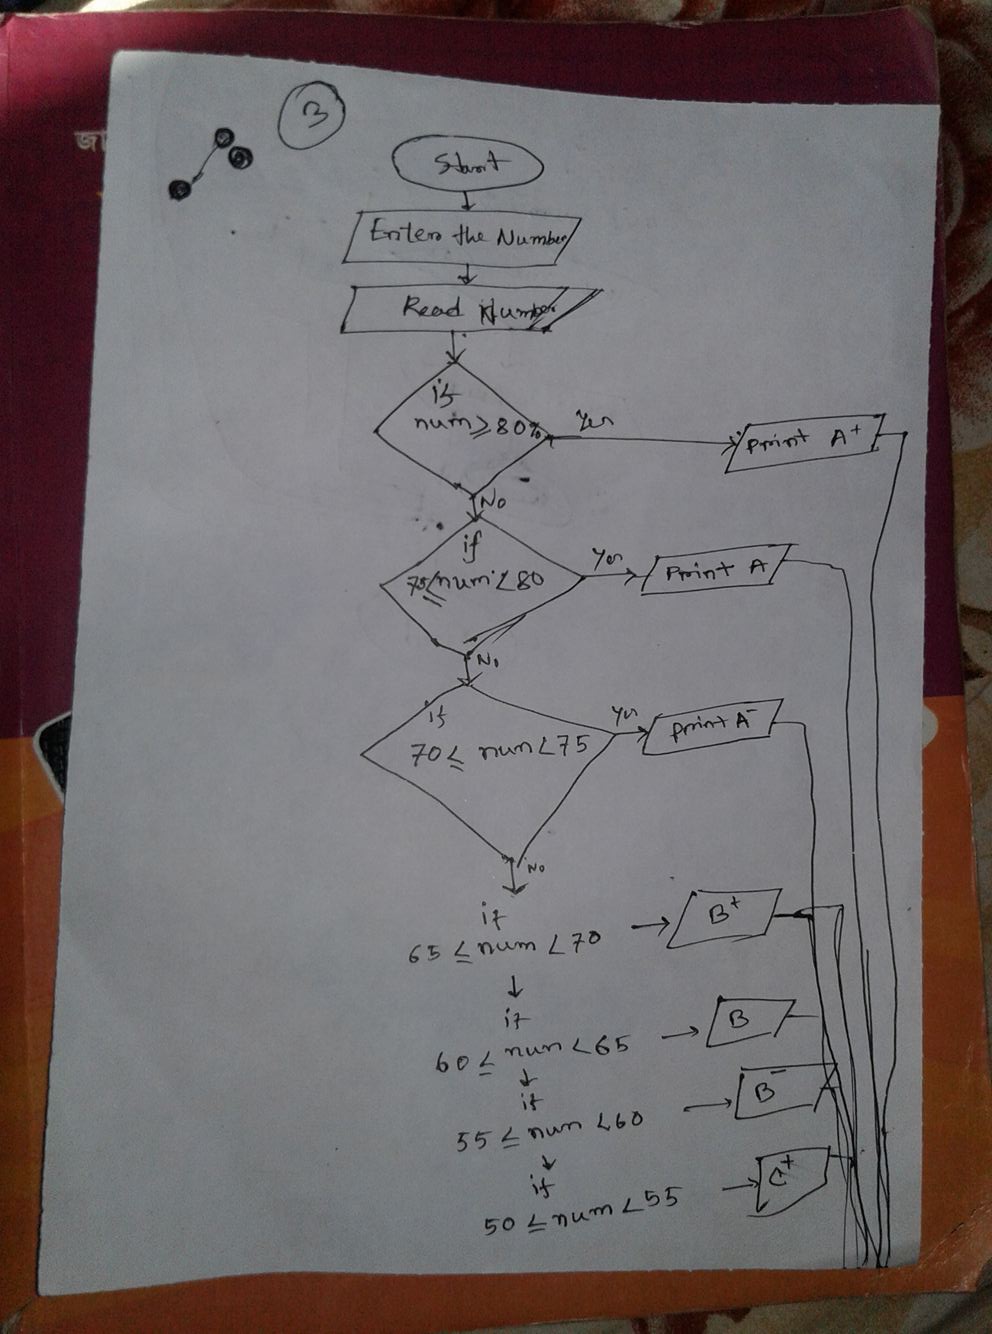 3
Start
Enter the Number
Read Number
if
num ≥ 80%
Yes
Print A+
No
if
75 ≤ num < 80
Yes
Print A
No
if
70 ≤ num < 75
Yes
Print A-
No
if
65 ≤ num < 70
B+
if
60 ≤ num < 65
B
if
55 ≤ num < 60
B-
if
50 ≤ num < 55
C+